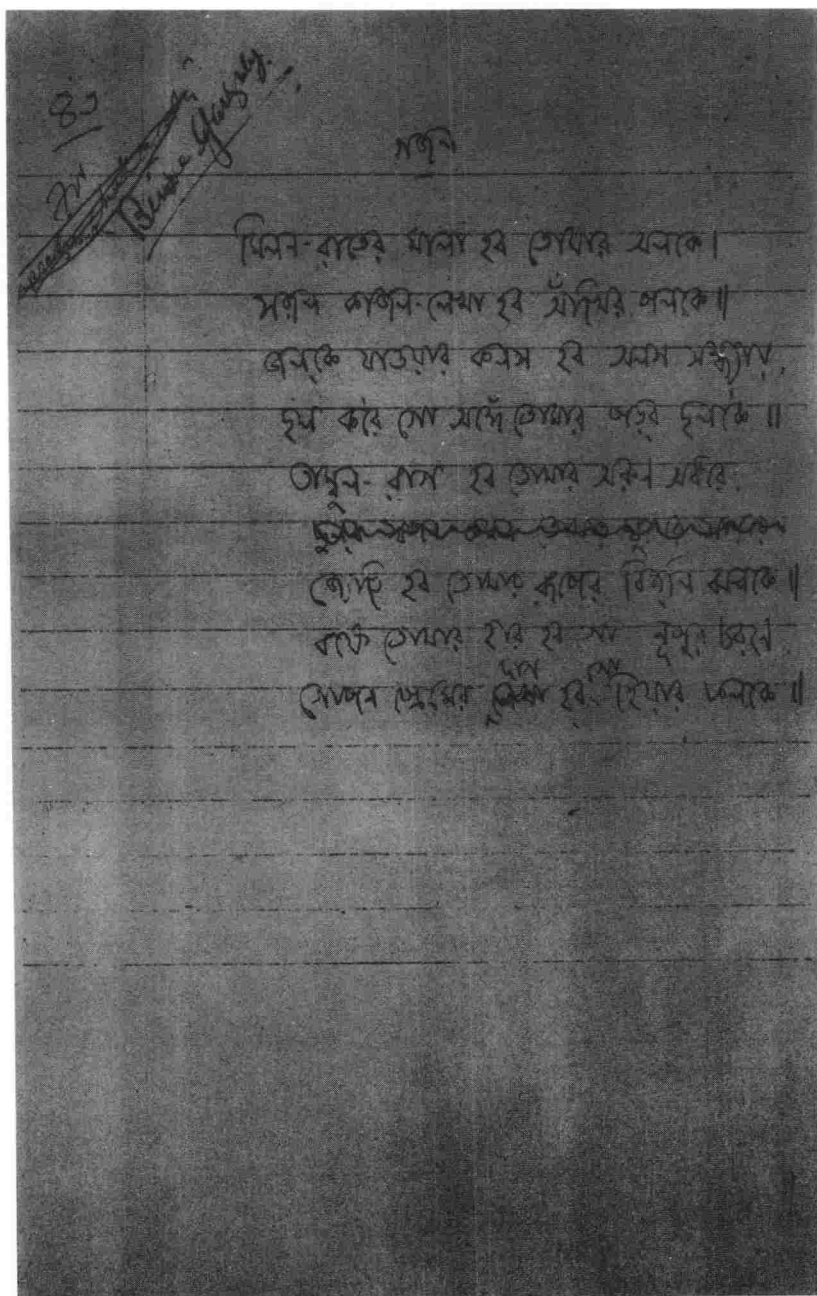 ৪১
Bimne Ganguly.
গজল
মিলন-রাতের মালা হব তোমার অলকে।
সজল কাজল-লেখা হব আঁখির পলকে॥
জলকে যাওয়ার কলস হব অলস সন্ধ্যায়,
ছল করে গো অঙ্গে তোমার পড়ব ছলকে॥
তাম্বুল-রাগ হব তোমার অরুণ অধরে,
জ্যোতি হব তোমার রূপের বিজলি ঝলকে॥
বক্ষে তোমার হার হব গো নূপুর চরণে,
দাগ গো
গোপন প্রেমের লেখা হব হিয়ার ফলকে॥